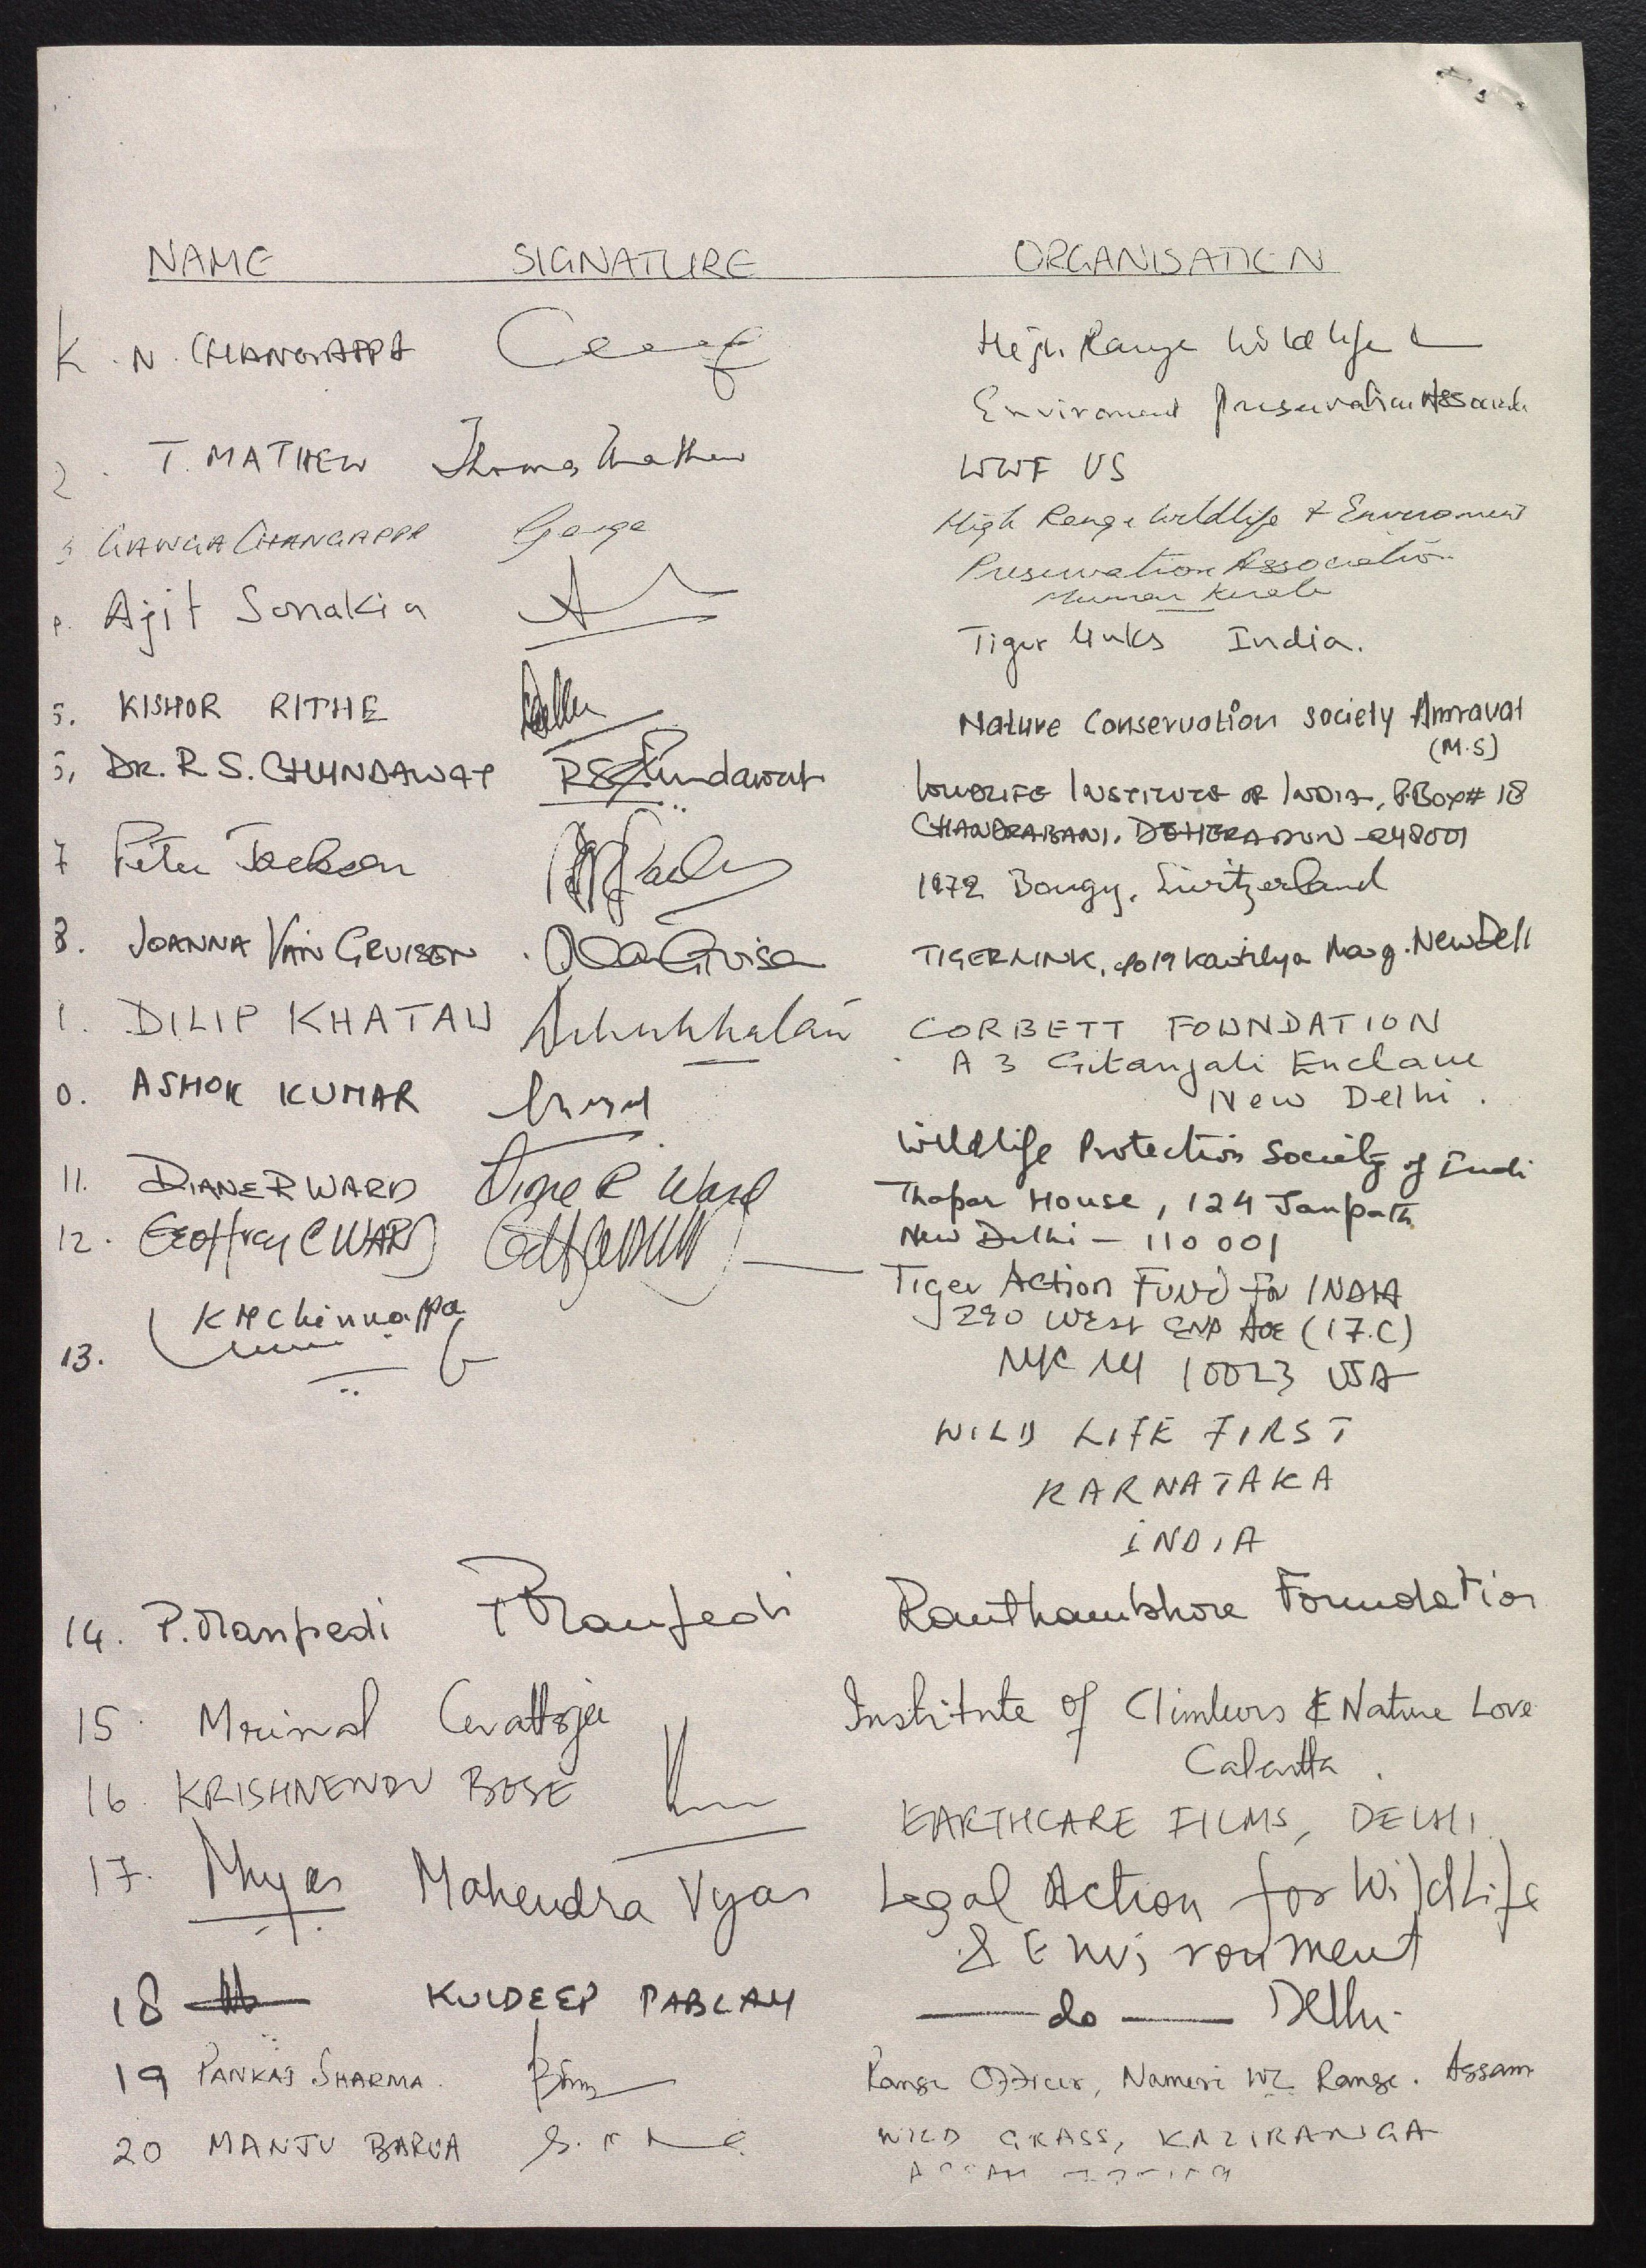 NAME SIGNATURE ORGANISATION
K. N. CHANGAPPA High Range Wildlife &
Enviroment Preservation Associate
2. T. MATHEW Thomas Mathew WWF US
3 GANGA CHANGAPPA Ganga High Range Wildlife & Enviroment
Preservation Association
Munnar Kerala
Ajit Sonakia Tiger links India.
5. KISHOR RITHE Nature Conservation Society Amravat
(M.S)
DR. R. S. CHUNDAWAT RSChundawat WILDLIFE INSTITUTE OF INDIA, P.Box# 18
CHANDRABANI, DEHERADUN-248001
7 Peter Jackson 1172 Bougy, Switzerland
8. JOANNA VAN GRUISEN TIGERLINK, c/o 19 Kautilya Marg. New Delh
DILIP KHATAU CORBETT FOUNDATION
A 3 Gitanjali Enclave
New Delhi.
0. ASHOK KUMAR
Wildlife Protection Society of Indi
11. DIANE R WARD Diane R Ward Thapar House, 124 Janpath
12. Geoffrey C WARD New Delhi - 110 001
Tiger Action Fund for INDIA
290 West END Ave (17.C)
NYC NY 10023 USA
13. K M Chinnappa
WILD LIFE FIRST
KARNATAKA
INDIA
14. P. Manfredi P Manfredi Ranthambhore Foundation
15. Mrinal Chatterjee Institute of Climbers & Nature Love
Calcutta.
16. KRISHNENDU BOSE EARTHCARE FILMS, DELHI.
17. Mahendra Vyas Legal Action for WildLife
& Environment
18 KULDEEP PABLAY — do — Delhi.
19 PANKAJ SHARMA. Range Officer, Nameri WL Range. Assam
20 MANJU BARUA WILD GRASS, KAZIRANGA